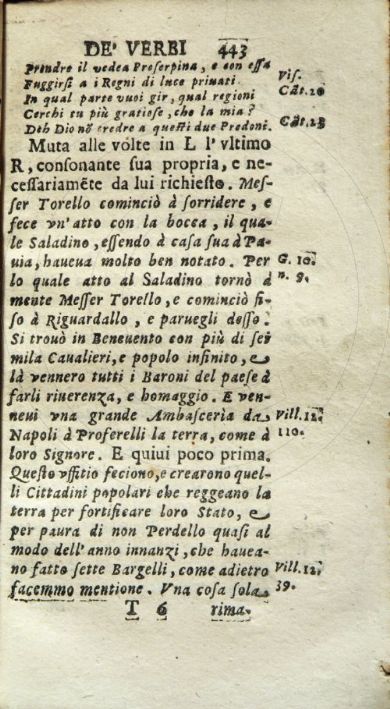 DE' VERBI 443
Prendre il vedea Proserpina, e con essa
Fuggirsi a i Regni di luce priuati.
In qual parte vuoi gir, qual regioni
Cerchi tu più gratiose, che la mia?
Deh Dio nõ credre a questi due Predoni.
Vis.
Cãt. 20
Cãt. 23
Muta alle volte in L l'vltimo
R, consonante sua propria, e ne-
cessariamẽte da lui richiesto. Mes-
ser Torello cominciò à sorridere, e
fece vn'atto con la bocca, il qua-
le Saladino, essendo à casa sua à Pa-
uia, haueua molto ben notato. Per
lo quale atto al Saladino tornò à
mente Messer Torello, e cominciò fi-
so à Riguardallo, e paruegli desso.
Si trouò in Beneuento con più di sei
mila Caualieri, e popolo infinito, e
là vennero tutti i Baroni del paese à
farli riuerenza, e homaggio. E ven-
neui vna grande Ambasceria da
Napoli à Proferelli la terra, come à
loro Signore. E quiui poco prima.
Questo vffitio feciono, e crearono quel-
li Cittadini popolari che reggeano la
terra per fortificare loro Stato, e
per paura di non Perdello quasi al
modo dell'anno innanzi, che hauea-
no fatto sette Bargelli, come adietro
facemmo mentione. Vna cosa sola
G. 10.
n. 9.
Vill. 12.
110.
Vill. 12.
39.
T 6 rima.